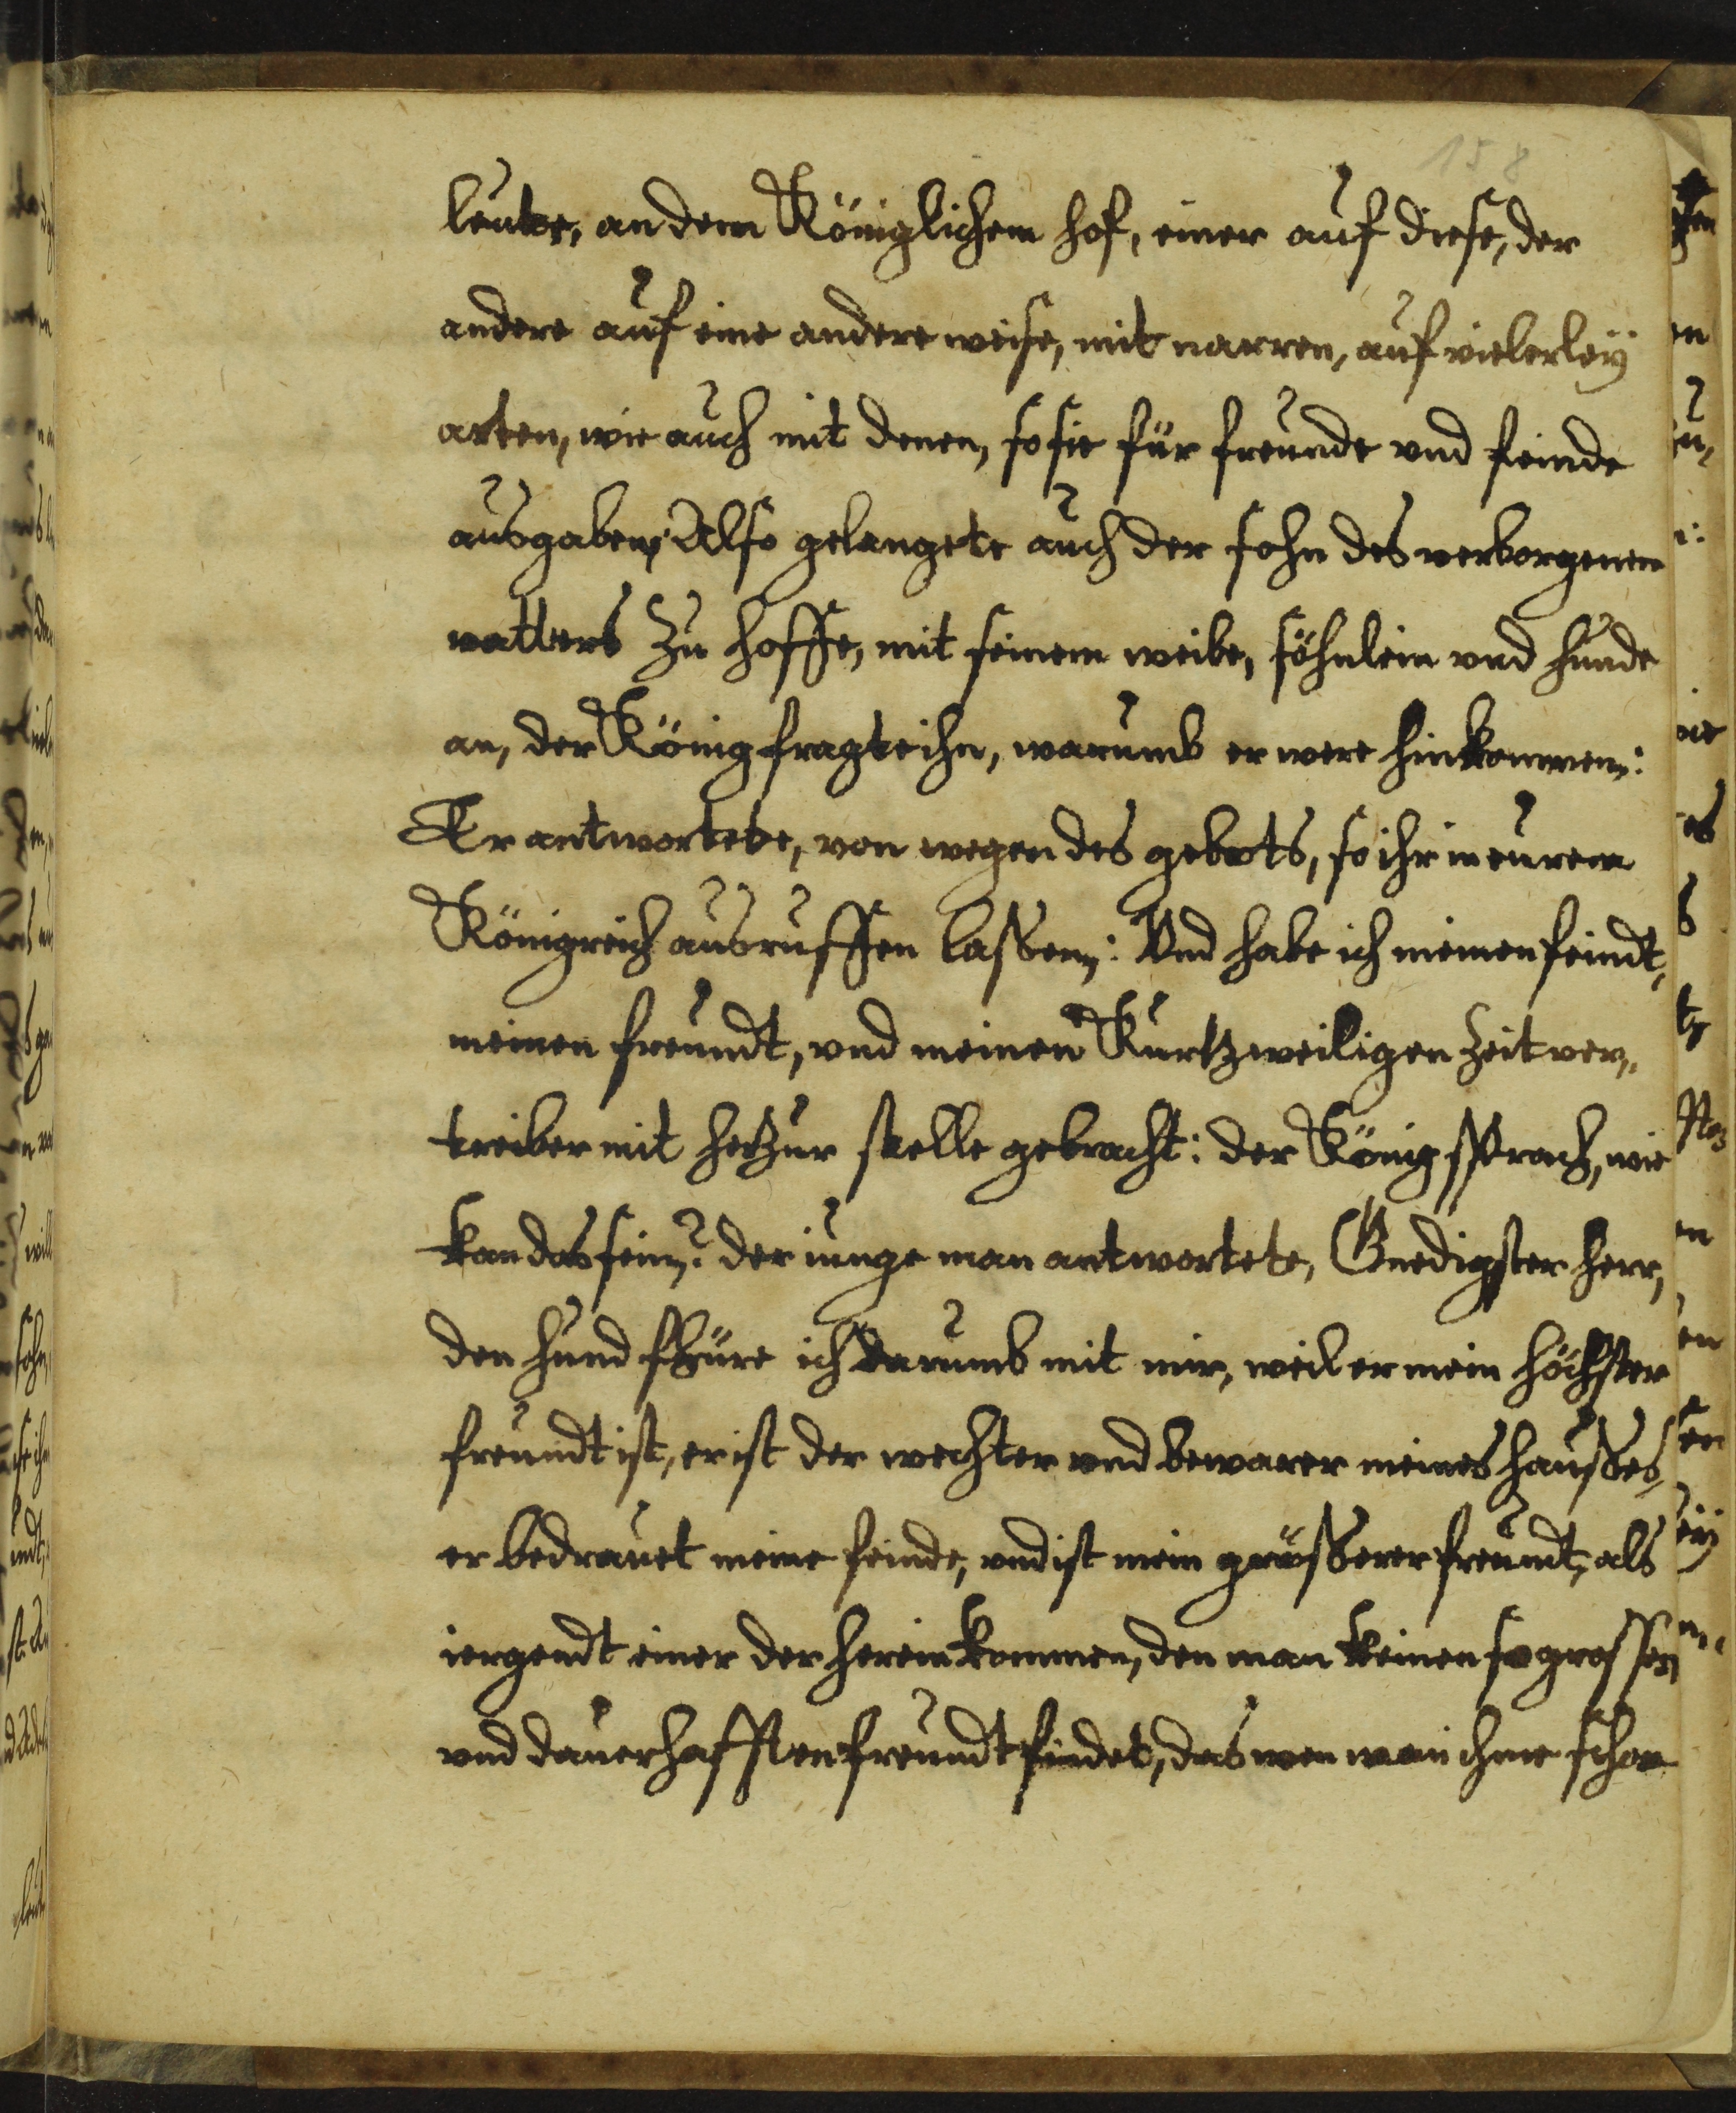 158
leute, an dem Königlichem hof, einer auf diese, der
andere auf eine andere weise, mit narren, auf vielerleÿ
arten, wie auch mit denen, so sie für freunde und feinde
ausgaben, Also gelangete auch der sohn des verborgenen
vatters zu hoffe, mit seinem weibe, söhnlein und hunde
an, der König fragte ihn, warumb er were hinkommen:
Er antwortete, von wegen des gebots, so ihr in eurem
Königreich ausruffen lassen: Und habe ich meinen feindt,
meinen freundt, und meinen Kurtzweiligen zeitver,,
treiber mit herzur stelle gebracht: der König sprach, wie
kan das sein? der iunge man antwortete, Gnedigster herr,
den hund fhüre ich darumb mit mir, weil er mein höchster
freundt ist, er ist der wechter und bewarer meines hausses,
er bedrauet meine feinde, und ist mein grösserer freundt, als
iergendt einer der herein kommen, den man keinen so grossen
und dauerhafften freundt findet, das wen man ihme schon